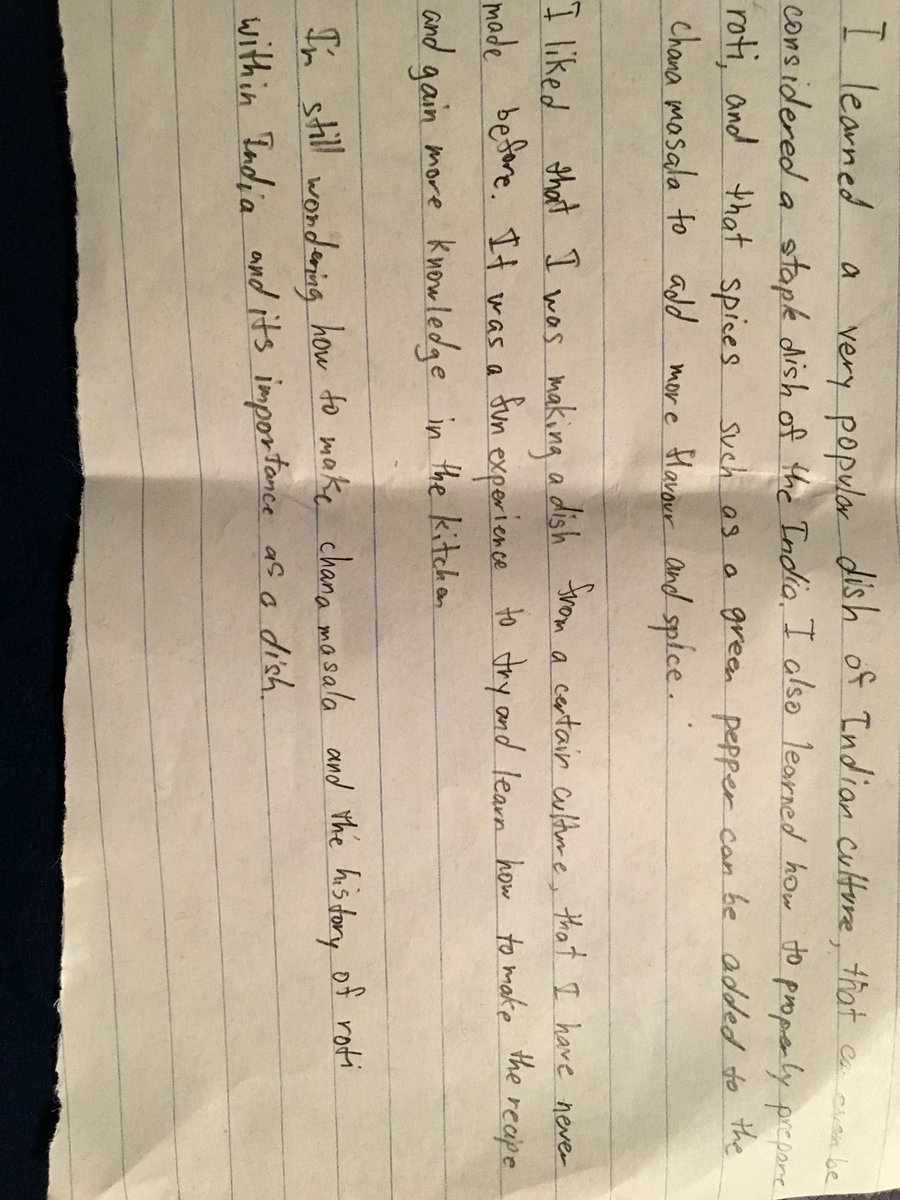 I learned a very popular dish of Indian culture, that can even be
considered a staple dish of the India. I also learned how to properly prepare
roti, and that spices such as a green pepper can be added to the
chana masala to add more flavour and spice.
I liked that I was making a dish from a certain culture, that I have never
made before. It was a fun experience to try and learn how to make the recipe
and gain more knowledge in the kitchen
I'm still wondering how to make chana masala and the history of roti
within India and its importance as a dish.